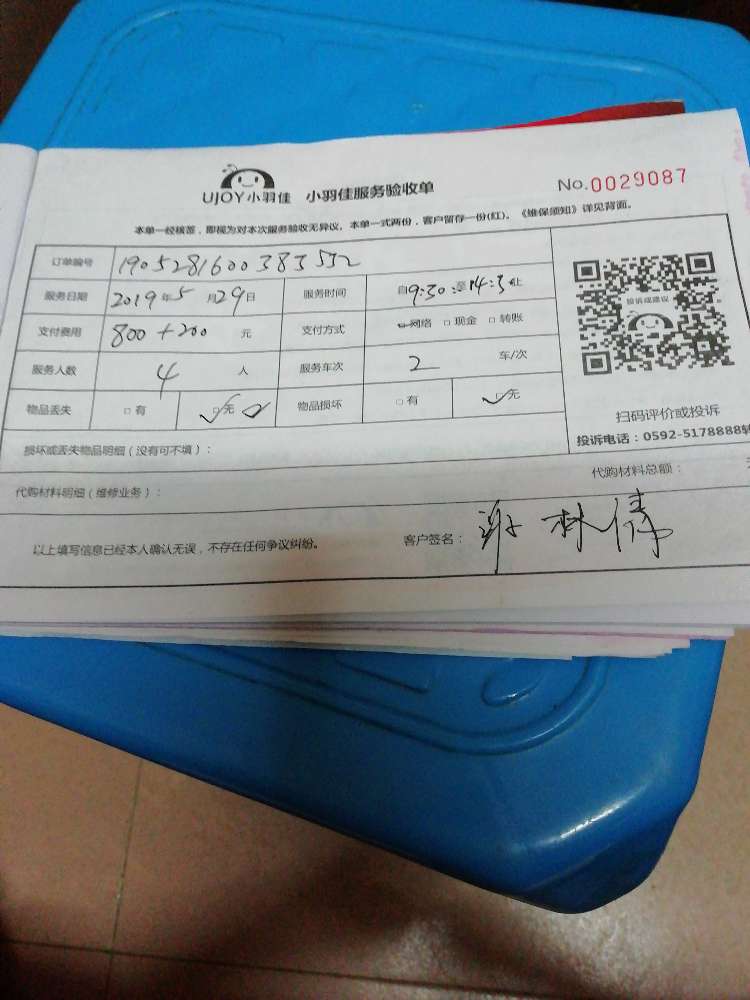 UJOY小羽佳 小羽佳服务验收单 No.0029087
本单一经核签，即视为对本次服务验收无异议。本单一式两份，客户留存一份(红)。《维保须知》详见背面。
订单编号 1905281600383532
服务日期 2019年5月29日 服务时间 自9:30:至14:3止
支付费用 800+200 元 支付方式 □网络 □现金 □转账
服务人数 4 人 服务车次 2 车/次
物品丢失 □有 □无 物品损坏 □有 □无
投诉或建议
扫码评价或投诉
投诉电话：0592-5178888转
损坏或丢失物品明细（没有可不填）：
代购材料明细（维修业务）： 代购材料总额：
以上填写信息已经本人确认无误，不存在任何争议纠纷。 客户签名：谢林伟